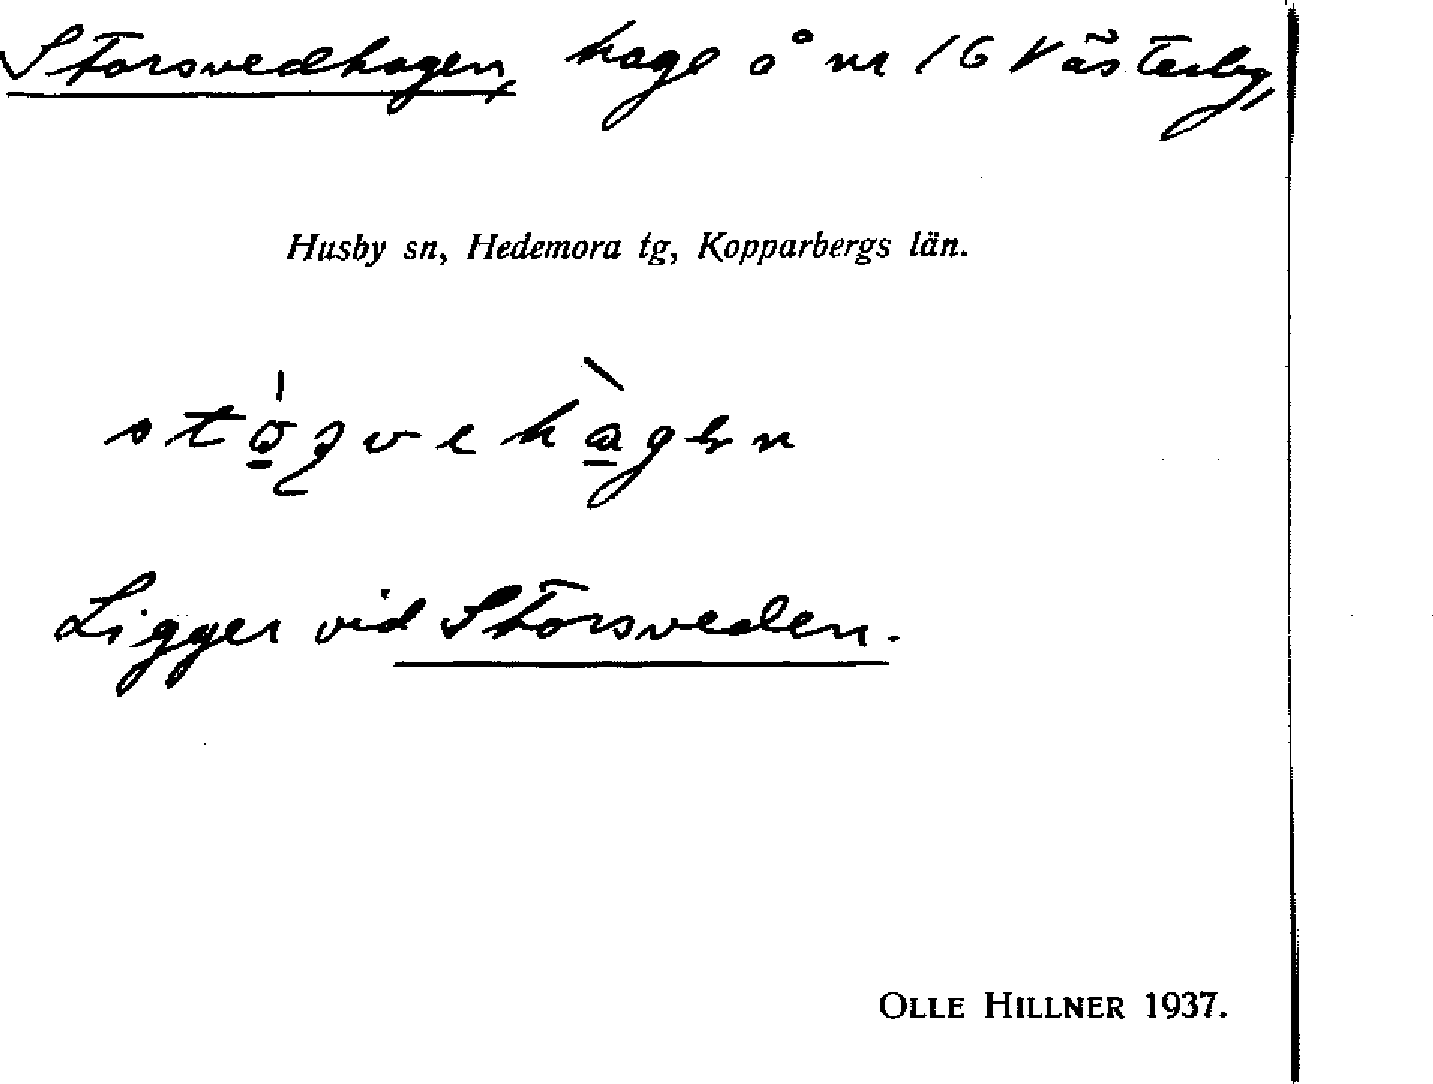 Storsvedhagen, hage å nr 16 Västerby,
Husby sn, Hedemora tg, Kopparbergs län.
Ligger vid Storsveden.
OLLE HILLNER 1937.